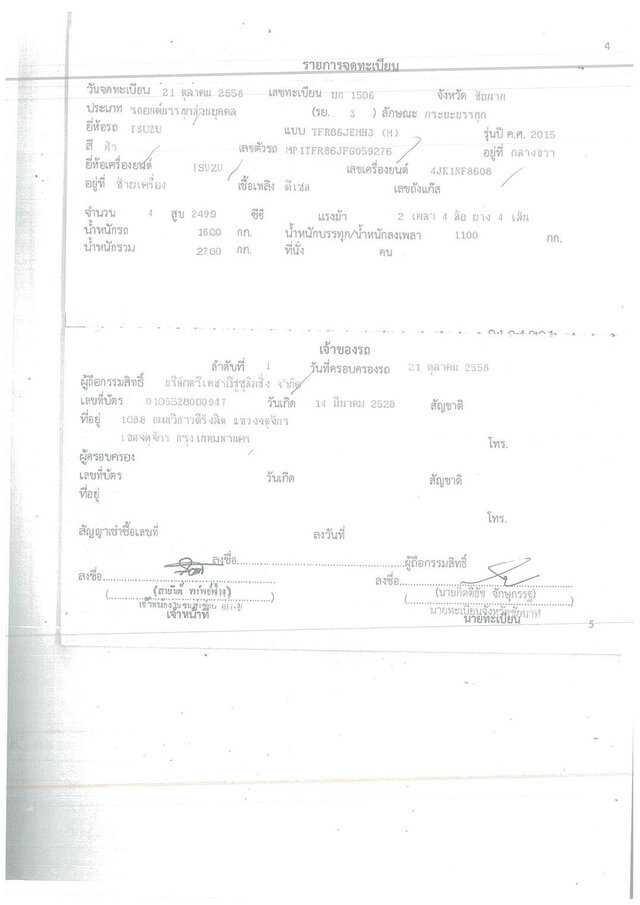 4
รายการจดทะเบียน
วันจดทะเบียน 21 ตุลาคม 2558 เลขทะเบียน บก 1506 จังหวัด ชัยนาท
ประเภท รถยนต์บรรทุกส่วนบุคคล (รย. 3 ) ลักษณะ กระบะบรรทุก
ยี่ห้อรถ ISUZU แบบ TFR86JEMH3 (M) รุ่นปี ค.ศ. 2015
สี ฟ้า เลขตัวรถ MP1TFR86JFG059276 อยู่ที่ กลางขวา
ยี่ห้อเครื่องยนต์ ISUZU เลขเครื่องยนต์ 4JK1NF8608
อยู่ที่ ซ้ายเครื่อง เชื้อเพลิง ดีเซล เลขถังแก๊ส
จำนวน 4 สูบ 2499 ซีซี แรงม้า 2 เพลา 4 ล้อ ยาง 4 เส้น
น้ำหนักรถ 1600 กก. น้ำหนักบรรทุก/น้ำหนักลงเพลา 1100 กก.
น้ำหนักรวม 2700 กก. ที่นั่ง คน
เจ้าของรถ
ลำดับที่ 1 วันที่ครอบครองรถ 21 ตุลาคม 2558
ผู้ถือกรรมสิทธิ์ บริษัทตรีเพชรอีซูซุลิสซิ่ง จำกัด
เลขที่บัตร 0105528000947 วันเกิด 14 มีนาคม 2528 สัญชาติ
ที่อยู่ 1088 ถนนวิภาวดีรังสิต แขวงจตุจักร
เขตจตุจักร กรุงเทพมหานคร โทร.
ผู้ครอบครอง
เลขที่บัตร วันเกิด สัญชาติ
ที่อยู่
โทร.
สัญญาเช่าซื้อเลขที่ ลงวันที่
ลงชื่อ ผู้ถือกรรมสิทธิ์
ลงชื่อ ลงชื่อ
(นายกิตติธัช จักษุกรรฐ)
นายทะเบียนจังหวัดชัยนาท
เจ้าหน้าที่ นายทะเบียน
5